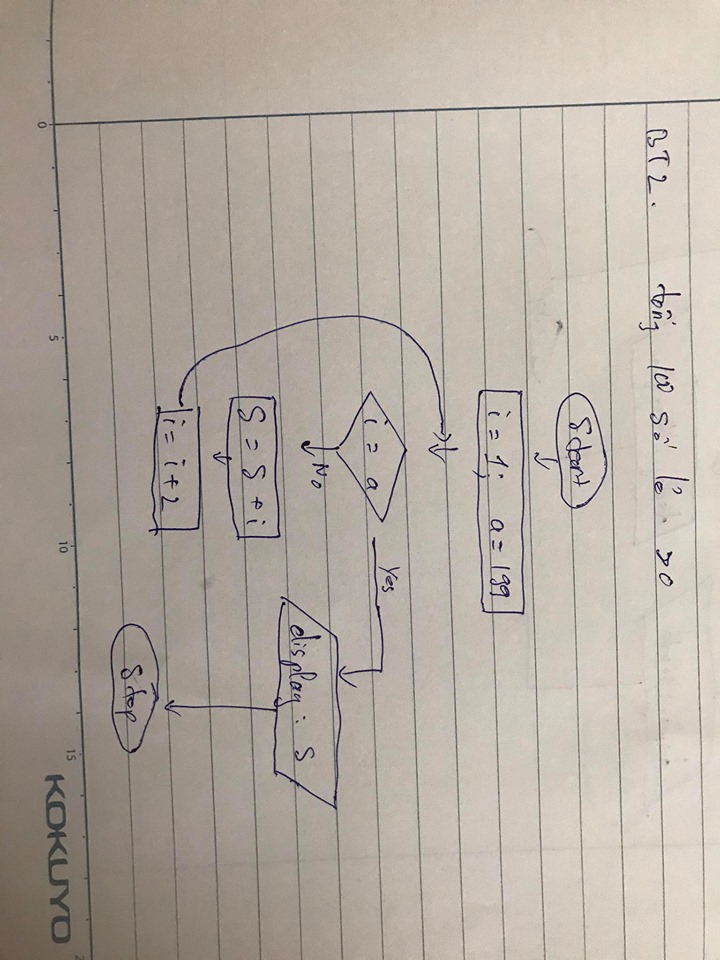 BT2. tổng 100 số lẻ >0
Start
i = 1; a = 199
i = a
Yes
No
S = S + i
i = i + 2
display: S
Stop
0 5 10 15
KOKUYO